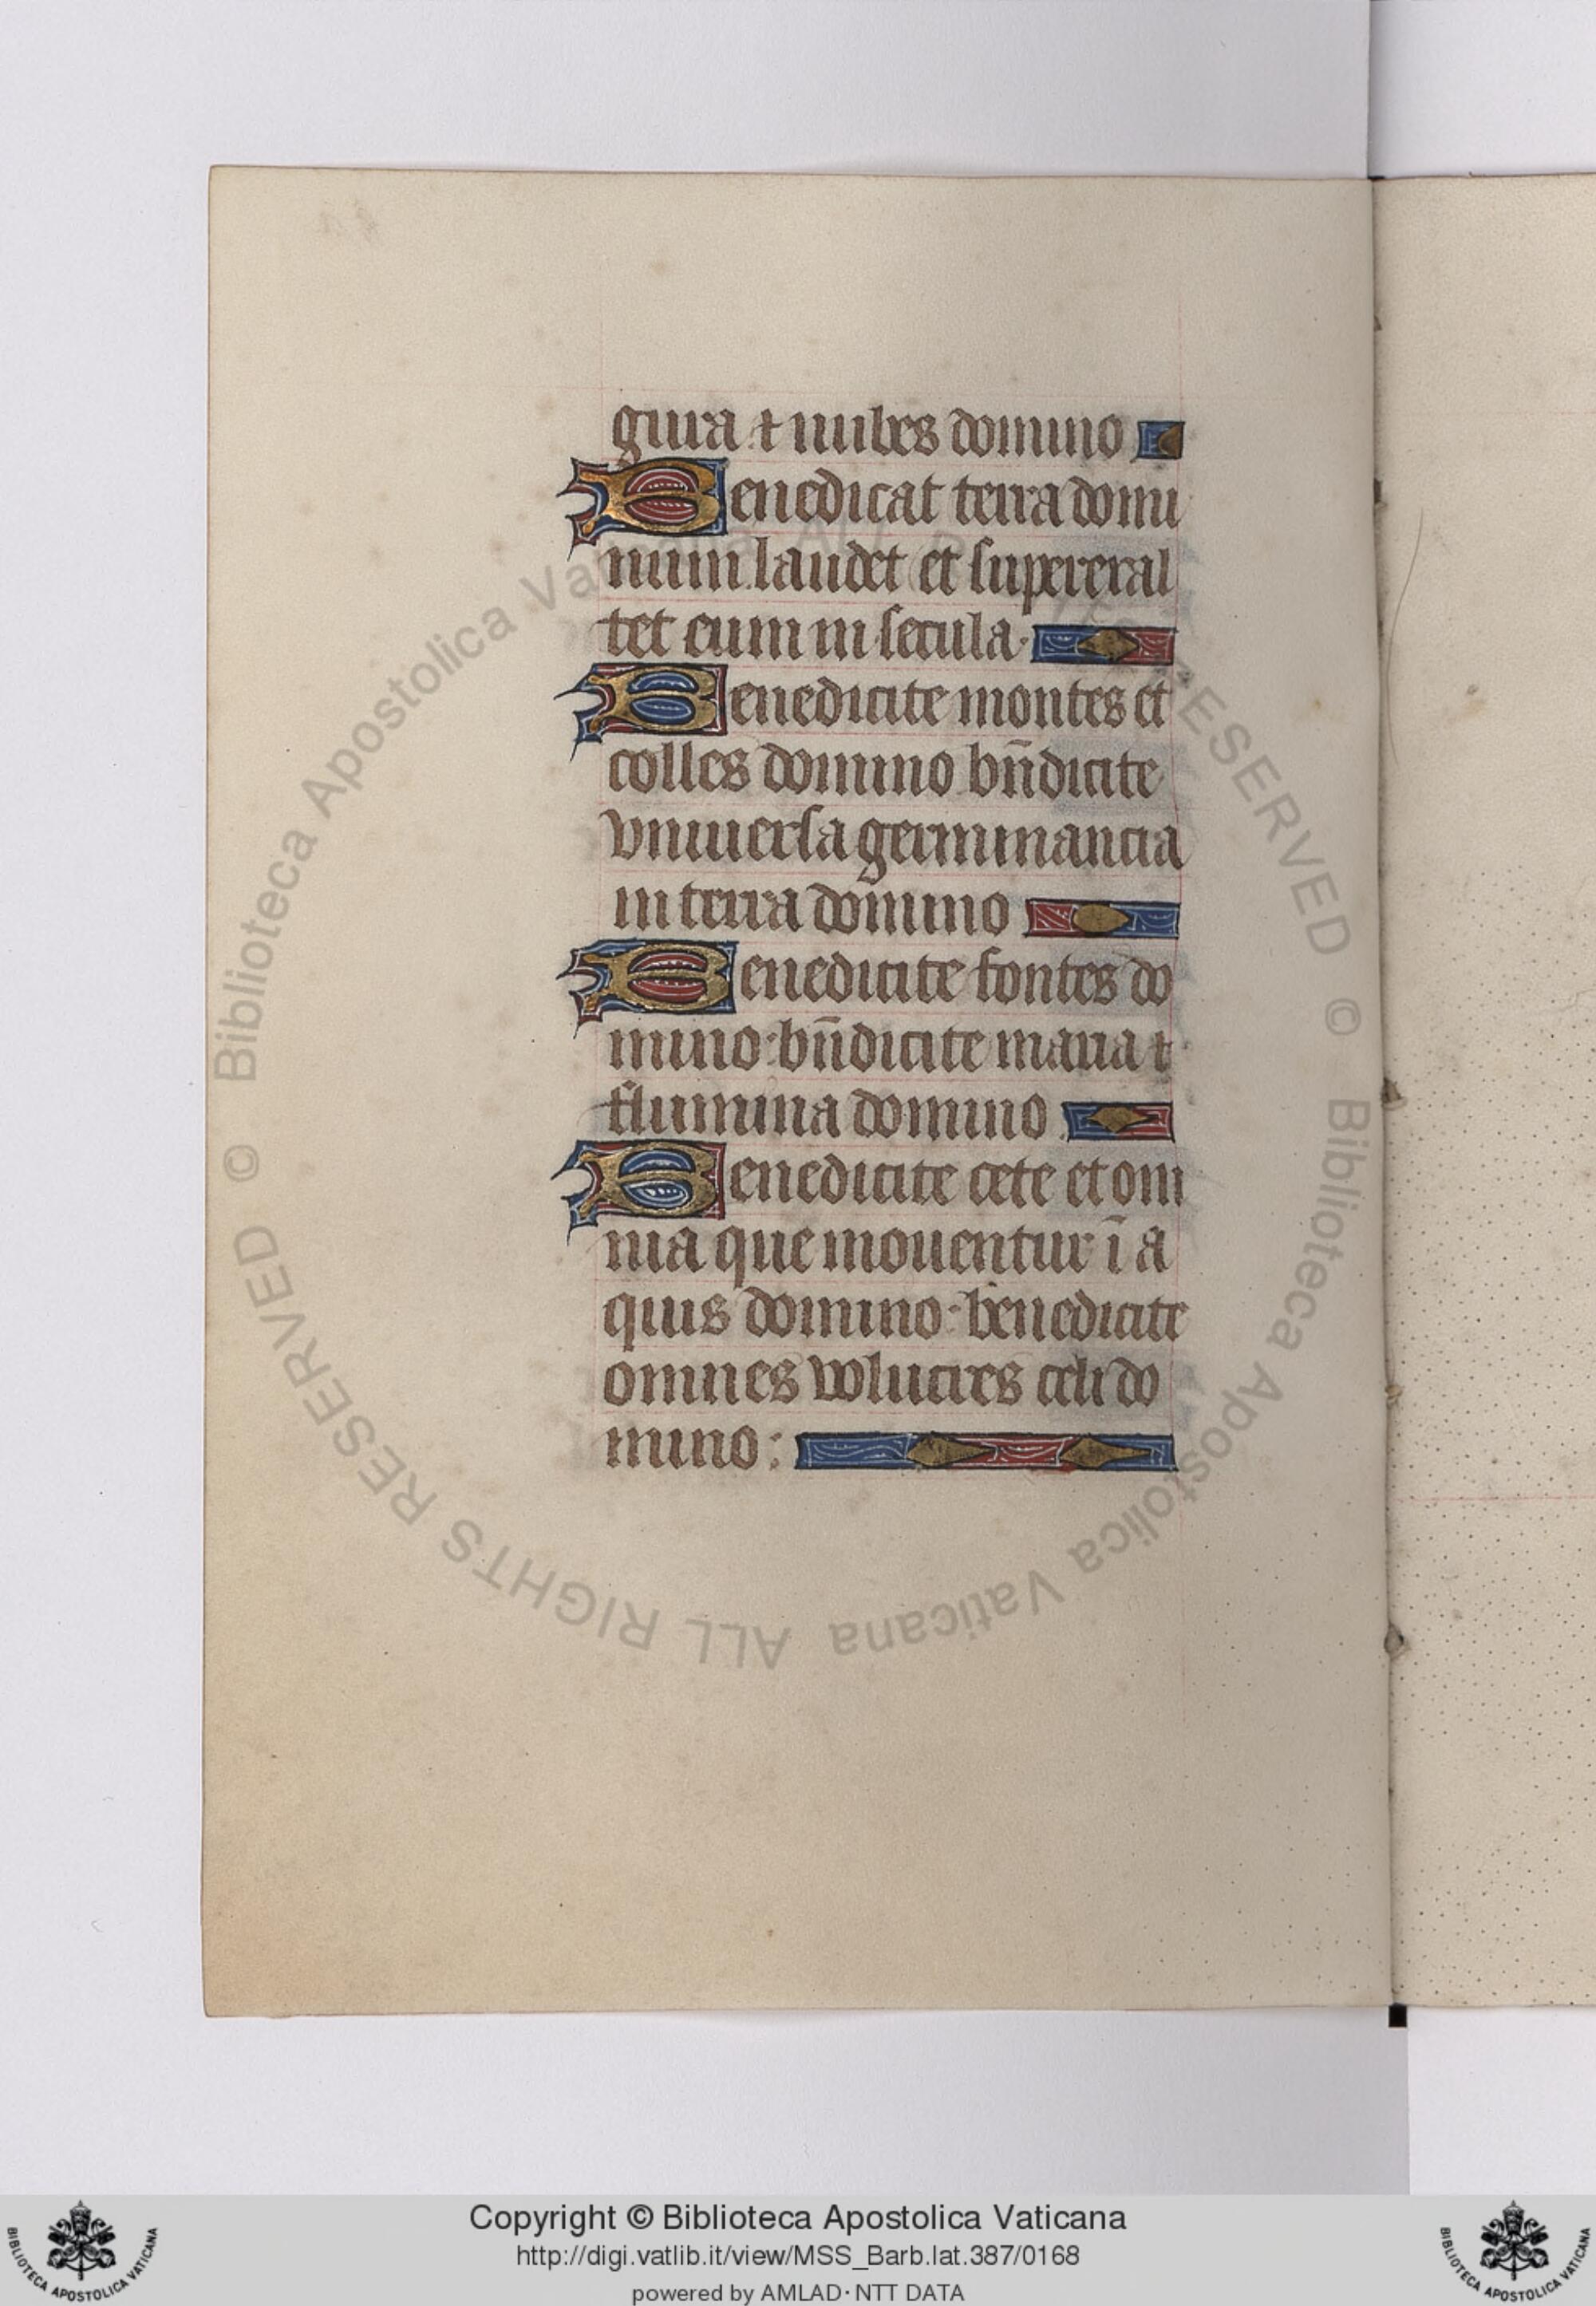 gura ⁊ nubes domino
Benedicat terra domi
num laudet et superexal
tet eum in secula·
Benedicite montes et
colles domino bn̄dicite
vniuersa germinancia
in terra domino
Benedicite fontes do
mino·bn̄dicite maria ⁊
flumina domino
Benedicite cete et om
nia que mouentur ī a
quis domino·benedicite
omnes volucres celi do
mino:
© Biblioteca Apostolica Vaticana ALL RIGHTS RESERVED
© Biblioteca Apostolica Vaticana ALL RIGHTS RESERVED
Copyright © Biblioteca Apostolica Vaticana
http://digi.vatlib.it/view/MSS_Barb.lat.387/0168
powered by AMLAD·NTT DATA
BIBLIOTECA APOSTOLICA VATICANA
BIBLIOTECA APOSTOLICA VATICANA